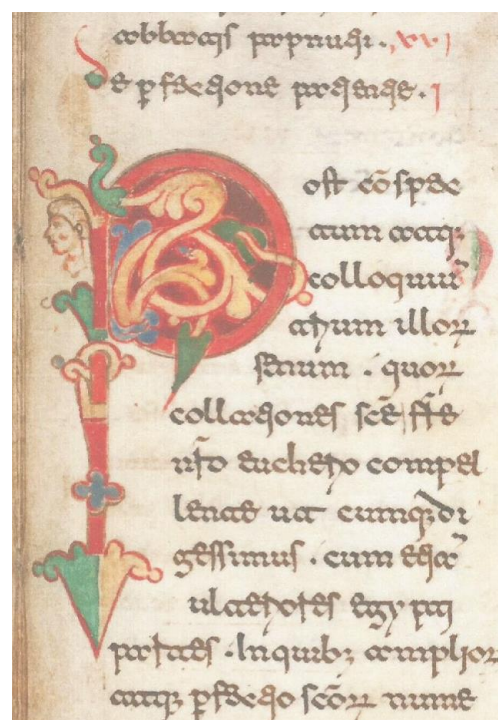 abbatis papnuti · xvi
De pfectione patientie · I
Post cō spe
ctum atq;
colloquiū
trium illoꝝ
senum · quoꝝ
collationes scē fr̄e
nr̄o eucherio compel
lente ut cumq; di
gessimus · cum etiā
ulteriores egypti
partes · In quibꝫ amplior
atq; pfectio scōꝝ nume